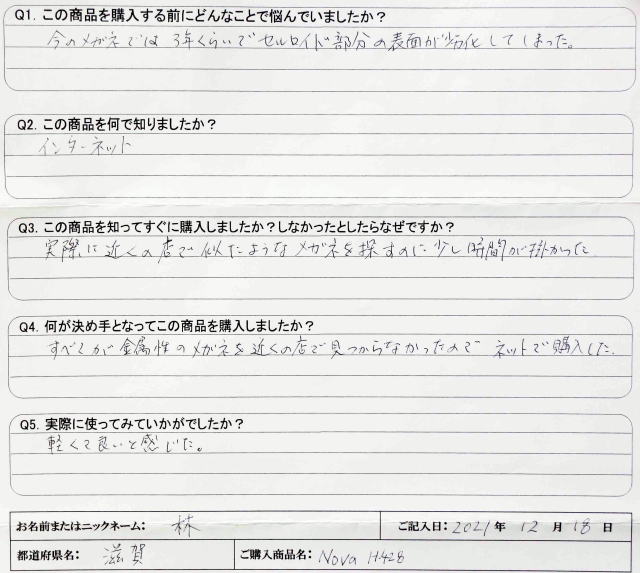 Q1. この商品を購入する前にどんなことで悩んでいましたか？
今のメガネでは 3年くらいでセルロイド部分の表面が劣化してしまった。
Q2. この商品を何で知りましたか？
インターネット
Q3. この商品を知ってすぐに購入しましたか？しなかったとしたらなぜですか？
実際に近くの店で似たようなメガネを探すのに少し時間が掛かった
Q4. 何が決め手となってこの商品を購入しましたか？
すべてが金属性のメガネを近くの店で見つからなかったので ネットで購入した.
Q5. 実際に使ってみていかがでしたか？
軽くて良いと感じた。
お名前またはニックネーム： 林 ご記入日：2021年 12月 18日
都道府県名： 滋賀 ご購入商品名：Nova H428